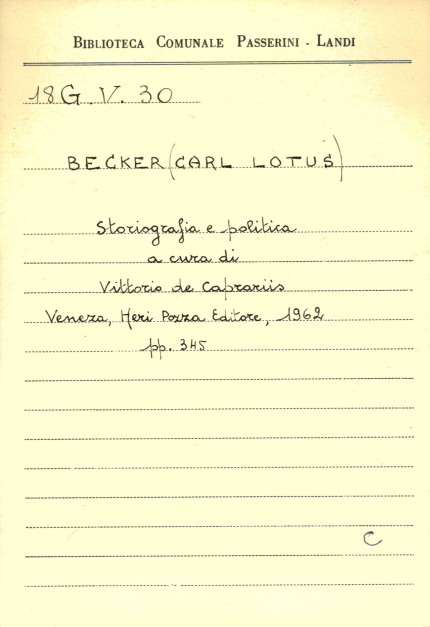 BIBLIOTECA COMUNALE PASSERINI - LANDI
18 G. V. 30
BECKER (CARL LOTUS)
Storiografia e politica
a cura di
Vittorio de Caprariis
Venezia, Neri Pozza Editore, 1962
pp. 345
C